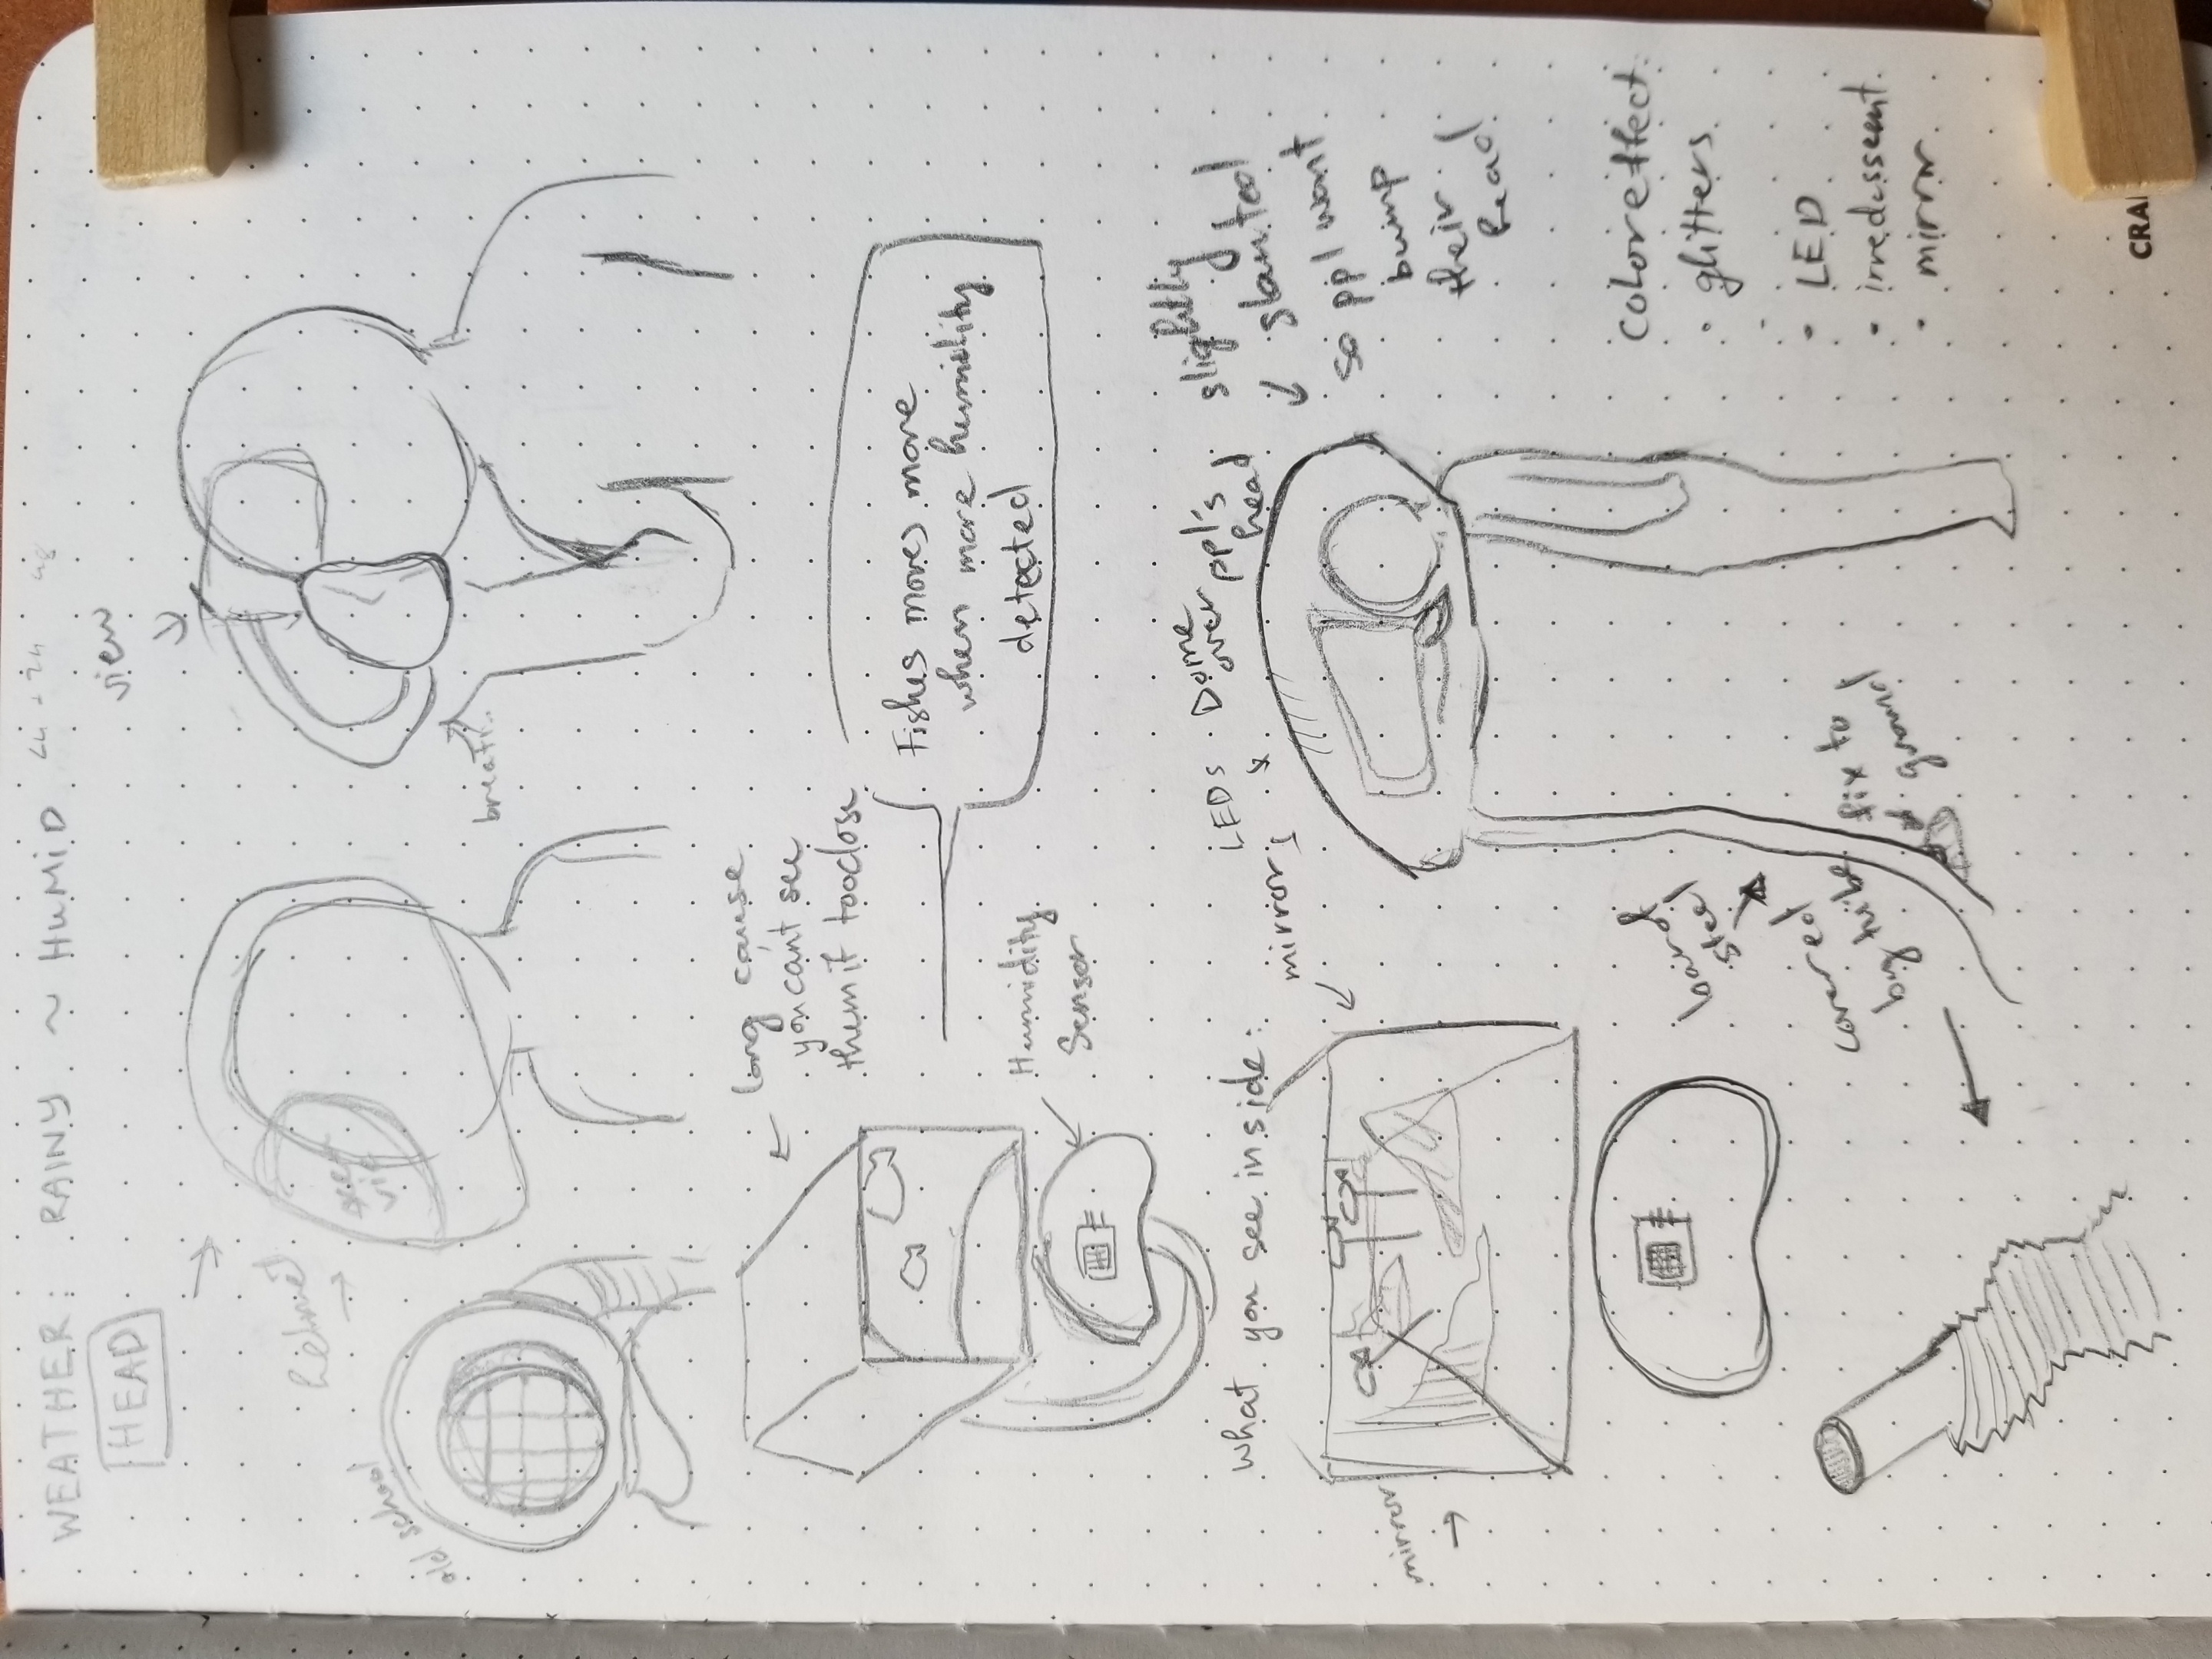 WEATHER: RAINY ~ HUMID
HEAD
view
helmet
old school
long cause
you can't see
them if too close
Fishes moves more
when more humidity
detected
Humidity
Sensor
What you see inside:
mirror
mirror
LEDs
Dome
over ppl's
head
slightly
slanted
so ppl wont
bump
their
head
band
steel
covered
by tube
fix to
ground
color effect
• glitters
• LED
• irredesseent
• mirror
CRA